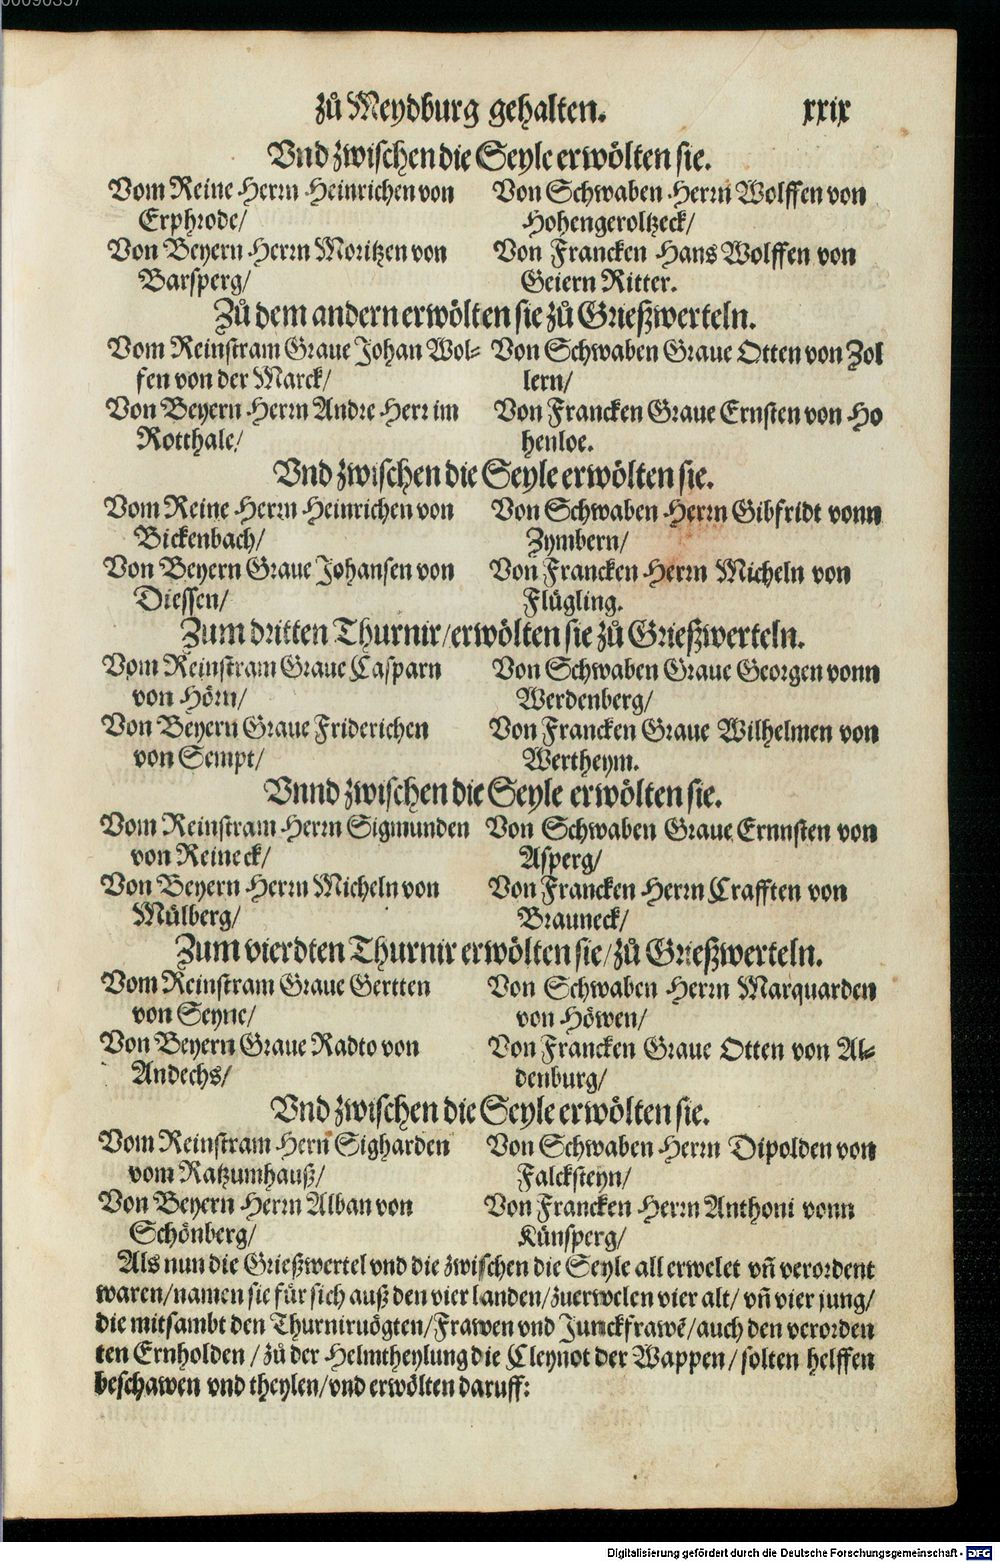 zů Meydburg gehalten. xxix
Vnd zwischen die Seyle erwölten sie.
Vom Reine Herrn Heinrichen von
Erphrode/
Von Beyern Herrn Moritzen von
Barsperg/
Von Schwaben Herrn Wolffen von
Hohengeroltzeck/
Von Francken Hans Wolffen von
Geiern Ritter.
Zů dem andern erwölten sie zů Grießwerteln.
Vom Reinstram Graue Johan Wol-
fen von der Marck/
Von Beyern Herrn Andre Herr im
Rotthale/
Von Schwaben Graue Otten von Zol
lern/
Von Francken Graue Ernsten von Ho
henloe.
Vnd zwischen die Seyle erwölten sie.
Vom Reine Herrn Heinrichen von
Bickenbach/
Von Beyern Graue Johansen von
Diessen/
Von Schwaben Herrn Gibfridt vonn
Zymbern/
Von Francken Herrn Micheln von
Flügling.
Zum dritten Thurnir/erwölten sie zů Grießwerteln.
Vom Reinstram Graue Casparn
von Hörn/
Von Beyern Graue Friderichen
von Sempt/
Von Schwaben Graue Georgen vonn
Werdenberg/
Von Francken Graue Wilhelmen von
Wertheym.
Vnnd zwischen die Seyle erwölten sie.
Vom Reinstram Herrn Sigmunden
von Reineck/
Von Beyern Herrn Micheln von
Mülberg/
Von Schwaben Graue Ernnsten von
Asperg/
Von Francken Herrn Crafften von
Brauneck/
Zum vierdten Thurnir erwölten sie/zů Grießwerteln.
Vom Reinstram Graue Gertten
von Seyne/
Von Beyern Graue Radto von
Andechs/
Von Schwaben Herrn Marquarden
von Höwen/
Von Francken Graue Otten von Al-
denburg/
Vnd zwischen die Seyle erwölten sie.
Vom Reinstram Hern Sigharden
vom Ratzumhauß/
Von Beyern Herrn Alban von
Schönberg/
Von Schwaben Herrn Dipolden von
Falcksteyn/
Von Francken Herrn Anthoni vonn
Künsperg/
Als nun die Grießwertel vnd die zwischen die Seyle all erwelet vñ verordent
waren/namen sie für sich auß den vier landen/zuerwelen vier alt/ vñ vier jung/
die mitsambt den Thurniruögten/Frawen vnd Junckfrawē/auch den verorden
ten Ernholden/zů der Helmtheylung die Cleynot der Wappen/solten helffen
beschawen vnd theylen/vnd erwölten daruff:
Digitalisierung gefördert durch die Deutsche Forschungsgemeinschaft - DFG